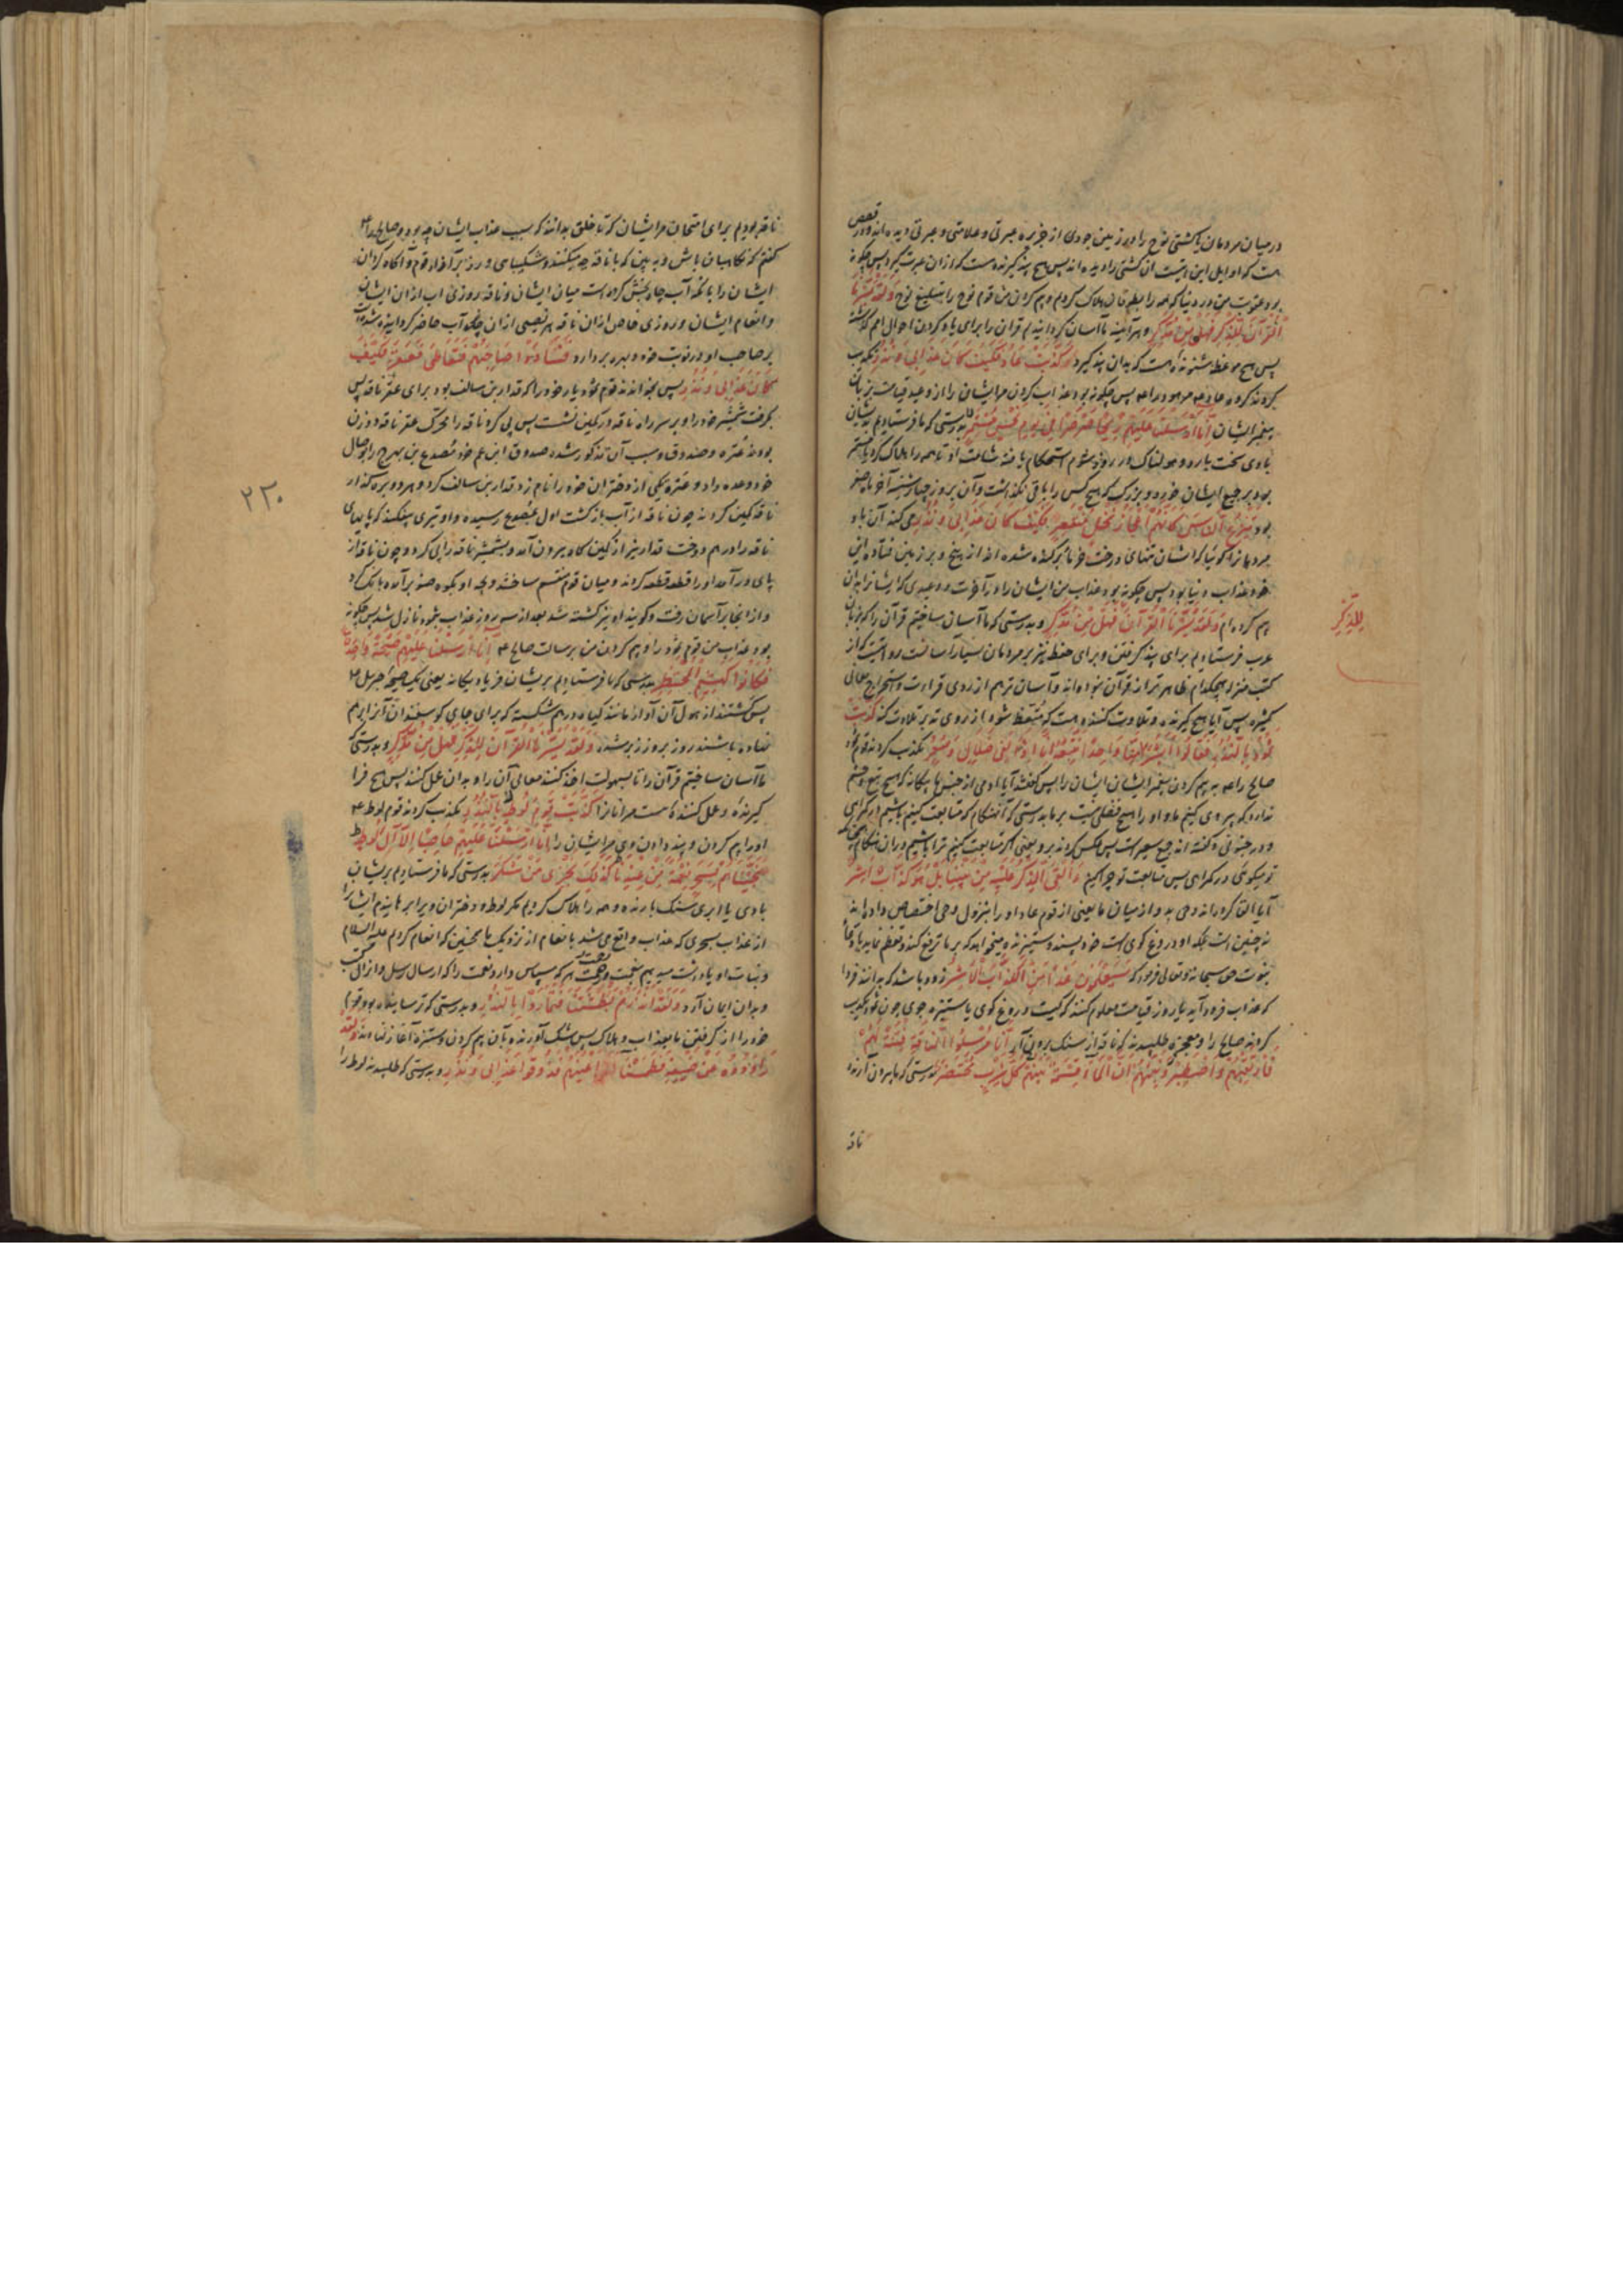 در میان مردمان یا کشتی نوح را در زمین جودی از جزیره عبرتی و علامتی و عبرتی دیده اند و در قصص
است که اوایل این امت آن کشتی را دیده اند پس هیچ پند گیرنده هست که از آن عبرت گیرد پس چگونه
بود عقوبت من در دنیا که همه را بطوفان هلاک کردم و بیم کردن من قوم نوح را بتبلیغ نوح وَلَقَدْ يَسَّرْنَا
الْقُرْآنَ لِلذِّكْرِ فَهَلْ مِنْ مُدَّكِرٍ و هر آینه ما آسان گردانیدیم قرآن را برای یاد کردن احوال امم گذشته
پس هیچ موعظه شنونده هست که بدان پند گیرد كَذَّبَتْ عَادٌ فَكَيْفَ كَانَ عَذَابِي وَنُذُرِ تکذیب
کردند گروه عاد مر هود را پس چگونه بود عذاب کردن مر ایشان را از وعید قیامت بزبان
پیغمبر ایشان إِنَّا أَرْسَلْنَا عَلَيْهِمْ رِيحًا صَرْصَرًا فِي يَوْمِ نَحْسٍ مُسْتَمِرٍّ بدرستی که ما فرستادیم بر ایشان
بادی سخت بارد و هولناک در روز شوم استحکام یافته شامت او تا همه را هلاک کرد یا مستمر
بود بر جمیع ایشان خرد و بزرگ که هیچ کس را باقی نگذاشت و آن بروز چهارشنبه آخر ماه صفر
بود تَنْزِعُ النَّاسَ كَأَنَّهُمْ أَعْجَازُ نَخْلٍ مُنْقَعِرٍ فَكَيْفَ كَانَ عَذَابِي وَنُذُرِ می کند آن باد
مردمانرا گویا که ایشان تنهای درخت خرما بر کنده شده اند از بیخ و بر زمین فتاده این
خود عذاب دنیا بود پس چگونه بود عذاب من ایشان را در آخرت و وعیدی که ایشانرا بدان
بیم کرده ام وَلَقَدْ يَسَّرْنَا الْقُرْآنَ فَهَلْ مِنْ مُدَّكِرٍ و بدرستی که ما آسان ساختیم قرآن را که بزبان
عرب فرستادیم برای پند گرفتن و برای حفظ نیز بر مردمان بسیار آسانست روایتست که از
کتب منزله هیچکدام ظاهرتر از قرآن نبوده اند و آسان تر هم از روی قراءت و استخراج معانی
کثیره پس آیا هیچ گیرنده و تلاوت کننده هست که متعظ شود از روی تدبر تلاوت کند كَذَّبَتْ
ثَمُودُ بِالنُّذُرِ فَقَالُوا أَبَشَرًا مِنَّا وَاحِدًا نَتَّبِعُهُ إِنَّا إِذًا لَفِي ضَلَالٍ وَسُعُرٍ تکذیب کردند قوم ثمود
صالح را به بیم کردن پیغمبر ایشان ایشان را پس گفتند آیا آدمی از جنس ما یگانه که هیچ تبع و حشم
ندارد که پیروی کنیم ما و او را هیچ فضلی نیست بر ما بدرستی که آنهنگام که متابعت کنیم باشیم در گمراهی
و در جنونی و گفته اند جمع سعیر است پس عکس کردند بر و یعنی اگر متابعت کنیم ترا باشیم در آن هنگام
تو میگوئی در گمراهی پس متابعت تو چرا کنیم أَأُلْقِيَ الذِّكْرُ عَلَيْهِ مِنْ بَيْنِنَا بَلْ هُوَ كَذَّابٌ أَشِرٌ
آیا القا کرده اند وحی بدو از میان ما یعنی از قوم عاد او را بنزول وحی اختصاص داده اند
نه چنین است بلکه او دروغ گوی است خود پسند و ستیزنده میخواهد که بر ما ترفع کند و تعظم نماید
بنبوت حق سبحانه و تعالی فرمود که سَيَعْلَمُونَ غَدًا مَنِ الْكَذَّابُ الْأَشِرُ زود باشد که بدانند فردا
که عذاب فرود آید یا روز قیامت معلوم کنند که کیست دروغ گوی یا ستیزه جوی چون ثمود تکذیب
کردند صالح را و معجزه طلبیدند که ناقه از سنگ برون آر إِنَّا مُرْسِلُو النَّاقَةِ فِتْنَةً لَهُمْ
فَارْتَقِبْهُمْ وَاصْطَبِرْ وَنَبِّئْهُمْ أَنَّ الْمَاءَ قِسْمَةٌ بَيْنَهُمْ كُلُّ شِرْبٍ مُحْتَضَرٌ بدرستی که ما بیرون آرنده
ناقه
للذکر
ناقه بودیم برای امتحان مر ایشان که تا خلق بدانند که سبب عذاب ایشان چه بود و صالح را
گفتم که نگاهبان باش و به بین که با ناقه چه میکنند و شکیبای ورز بر آزار قوم و آگاه گردان
ایشان را بآنکه آب چاه بخش کرده است میان ایشان و ناقه روزی آب از آن ایشان
و انعام ایشان و روزی خاص از آن ناقه هر نصیبی از آن چاه آب حاضر گردانیده شده است
بر صاحب او در نوبت خود و بهره بردارد فَنَادَوْا صَاحِبَهُمْ فَتَعَاطَى فَعَقَرَ فَكَيْفَ
كَانَ عَذَابِي وَنُذُرِ پس بخواندند قوم ثمود یار خود را که قدار بن سالف بود برای عقر ناقه پس
بگرفت شمشیر خود را و بر سر راه ناقه در کمین نشست پس پی کرد ناقه را محرک عقر ناقه دو زن
بودند عنزه و صدوق و سبب آن مذکور شده صدوق ابن عم خود مصدع بن مهرج را بوصال
خود وعده داد و عنزه یکی از دختران خود را نام زد قدار بن سالف کرد و هر دو بره گذار
ناقه کمین کردند چون ناقه از آب بازگشت اول بمصدع رسیده و او تیری بیفکند که پایهای
ناقه را درهم دوخت قدار نیز از کمین گاه بیرون آمد و بشمشیر ناقه را پی کرد و چون ناقه از
پای در آمد او را قطعه قطعه کردند و میان قوم منقسم ساختند و بچه او بکوه صنو بر آمده بانگ کرد
و از آنجا بر آسمان رفت و گویند او نیز کشته شد بعد از سه روز عذاب بثمود نازل شد پس چگونه
بود عذاب من قوم ثمود را و بیم کردن من برسالت صالح ع إِنَّا أَرْسَلْنَا عَلَيْهِمْ صَيْحَةً وَاحِدَةً
فَكَانُوا كَهَشِيمِ الْمُحْتَظِرِ بدرستی که ما فرستادیم بر ایشان فریاد یگانه یعنی یک صیحه جبریل ع
پس گشتند از هول آن آواز مانند گیاه درهم شکسته که برای جای گوسفندان آنرا بهم
نهاده باشند روز بروز زبر شده وَلَقَدْ يَسَّرْنَا الْقُرْآنَ لِلذِّكْرِ فَهَلْ مِنْ مُدَّكِرٍ و بدرستی که
ما آسان ساختیم قرآن را تا بسهولت اخذ کنند معانی آن را و بدان عمل کنند پس هیچ فرا
گیرنده و عمل کننده هست مر آنرا كَذَّبَتْ قَوْمُ لُوطٍ بِالنُّذُرِ تکذیب کردند قوم لوط ع
او را بیم کردن و پند دادن وی مر ایشان را إِنَّا أَرْسَلْنَا عَلَيْهِمْ حَاصِبًا إِلَّا آلَ لُوطٍ
نَجَّيْنَاهُمْ بِسَحَرٍ نِعْمَةً مِنْ عِنْدِنَا كَذَلِكَ نَجْزِي مَنْ شَكَرَ بدرستی که ما فرستادیم بر ایشان
بادی یا ابری سنگ بارنده و همه را هلاک کردیم مگر لوط و دختران ویرا برهانیدیم ایشان را
از عذاب بسحری که عذاب واقع می شد بانعام از نزدیک ما همچنین که انعام کردم علیه السلام
و بنات او پاداشت میدهیم بنعمت و رحمت هر که سپاس دارد نعمت را که ارسال رسل و انزال کتب
و بدان ایمان آرد وَلَقَدْ أَنْذَرَهُمْ بَطْشَتَنَا فَتَمَارَوْا بِالنُّذُرِ و بدرستی که ترسانیده بود قوم
خود را از گرفتن ما بعذاب و هلاک پس شک آوردند بآن بیم کردن و ستیزه آغاز نهادند وَلَقَدْ
رَاوَدُوهُ عَنْ ضَيْفِهِ فَطَمَسْنَا أَعْيُنَهُمْ فَذُوقُوا عَذَابِي وَنُذُرِ و بدرستی که طلبیدند لوط را
۲۲۰